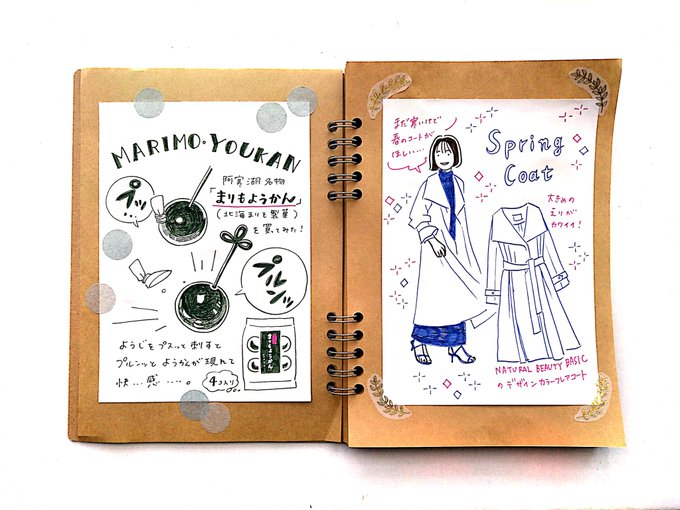 MARIMO・YOUKAN
阿寒湖名物
「まりもようかん」
(北海まりも製菓)
を買ってみた!
プッ
プルンッ
ようじをプスッと刺すと
プルンッとようかんが現れて
快…感…….。
4コ入り
まりもようかん
まだ寒いけど
春のコートが
ほしい…
Spring
Coat
大きめの
えりが
カワイイ!
NATURAL BEAUTY BASIC
のデザインカラーフレアコート